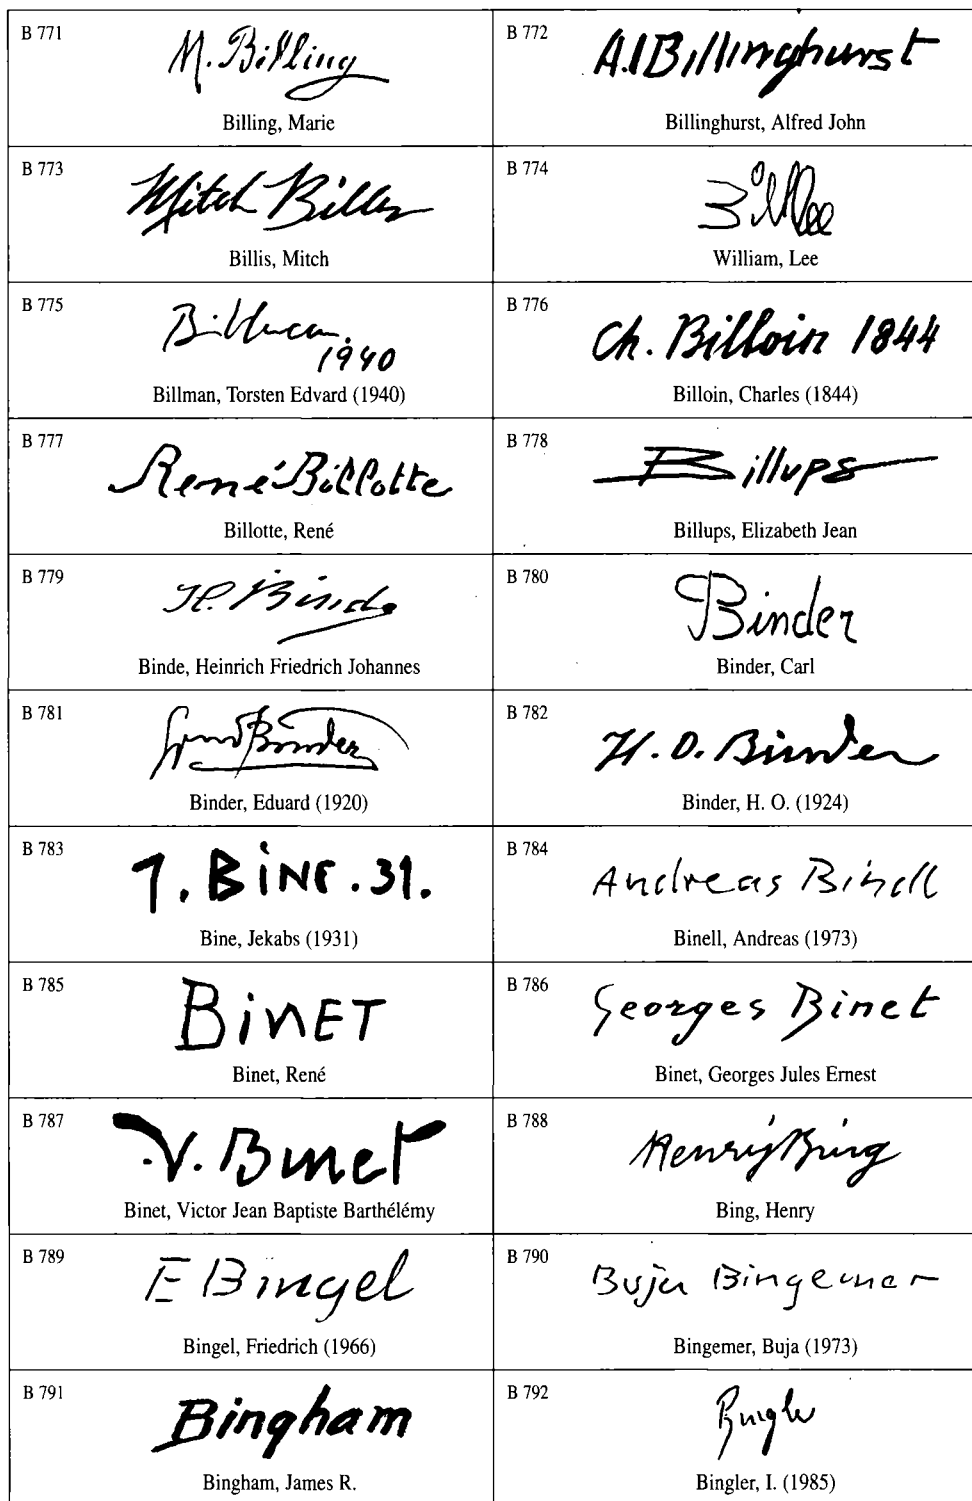 B 771
M. Billing
Billing, Marie
B 772
A.J Billinghurst
Billinghurst, Alfred John
B 773
Mitch Billis
Billis, Mitch
B 774
Bill Lee
William, Lee
B 775
Billman
1940
Billman, Torsten Edvard (1940)
B 776
Ch. Billoin 1844
Billoin, Charles (1844)
B 777
René Billotte
Billotte, René
B 778
Billups
Billups, Elizabeth Jean
B 779
H. Binde
Binde, Heinrich Friedrich Johannes
B 780
Binder
Binder, Carl
B 781
Binder
Binder, Eduard (1920)
B 782
H. O. Binder
Binder, H. O. (1924)
B 783
J. BiNE . 31.
Bine, Jekabs (1931)
B 784
Andreas Binell
Binell, Andreas (1973)
B 785
BiNET
Binet, René
B 786
Georges Binet
Binet, Georges Jules Ernest
B 787
V. Binet
Binet, Victor Jean Baptiste Barthélémy
B 788
Henry Bing
Bing, Henry
B 789
F Bingel
Bingel, Friedrich (1966)
B 790
Buja Bingemer
Bingemer, Buja (1973)
B 791
Bingham
Bingham, James R.
B 792
Bingler
Bingler, I. (1985)